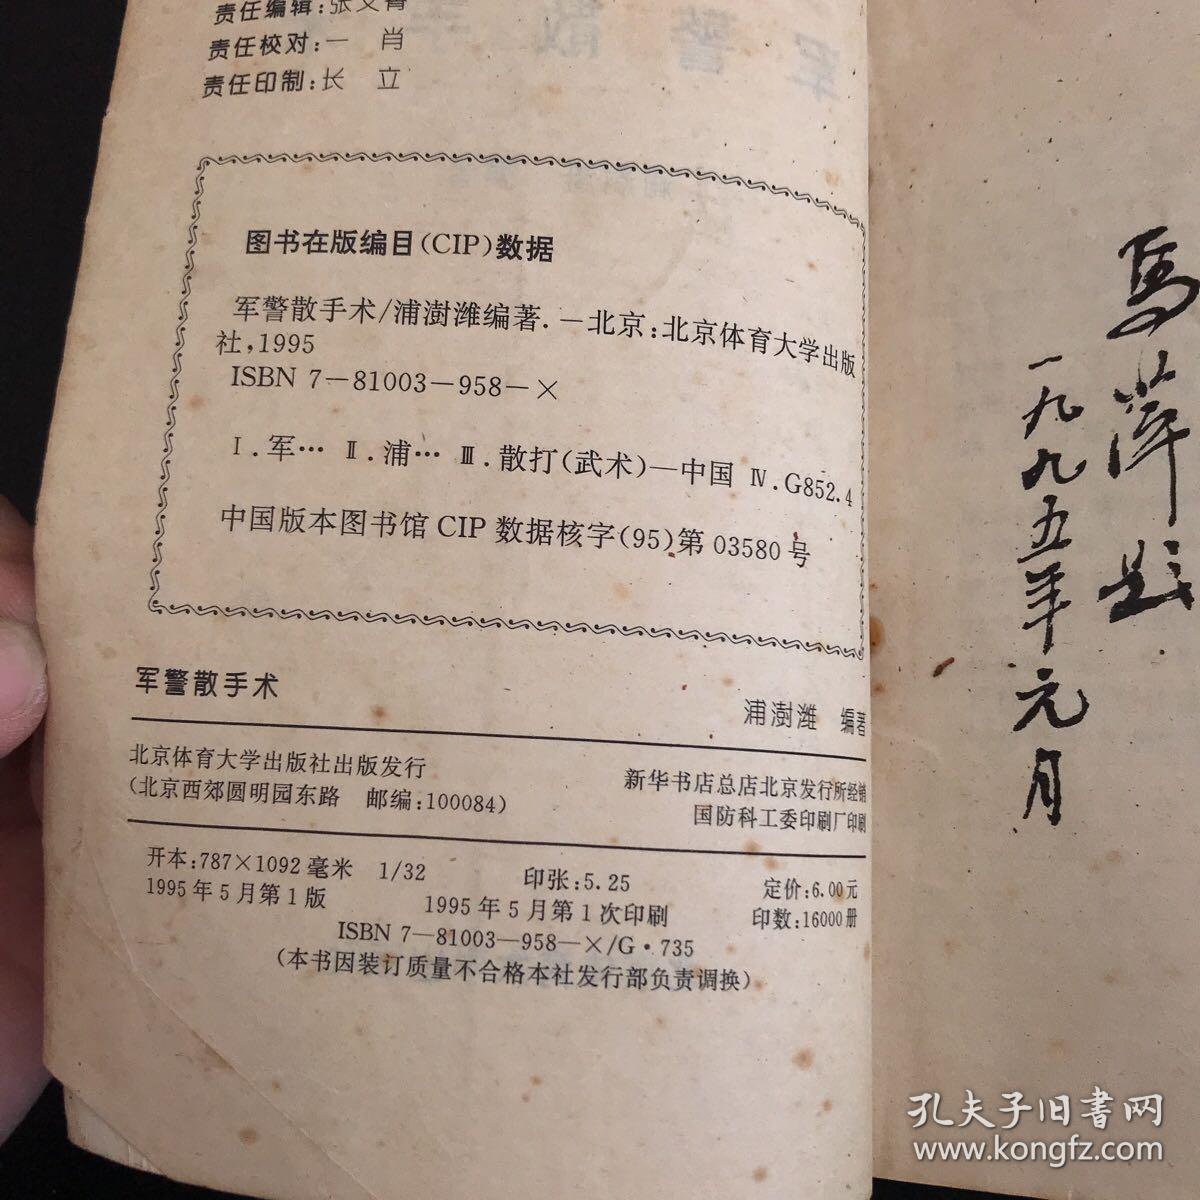 责任编辑:张文菁
责任校对:一 肖
责任印制:长 立
图书在版编目(CIP)数据
军警散手术/浦澍潍编著.—北京:北京体育大学出版
社,1995
ISBN 7—81003—958—×
Ⅰ.军… Ⅱ.浦… Ⅲ.散打(武术)—中国 Ⅳ.G852.4
中国版本图书馆CIP数据核字(95)第03580号
军警散手术
浦澍潍 编著
北京体育大学出版社出版发行
(北京西郊圆明园东路 邮编:100084)
新华书店总店北京发行所经销
国防科工委印刷厂印刷
开本:787×1092毫米 1/32 印张:5.25 定价:6.00元
1995年5月第1版 1995年5月第1次印刷 印数:16000册
ISBN 7—81003—958—×/G·735
(本书因装订质量不合格本社发行部负责调换)
馬萍題
一九九五年元月
孔夫子旧书网
www.kongfz.com